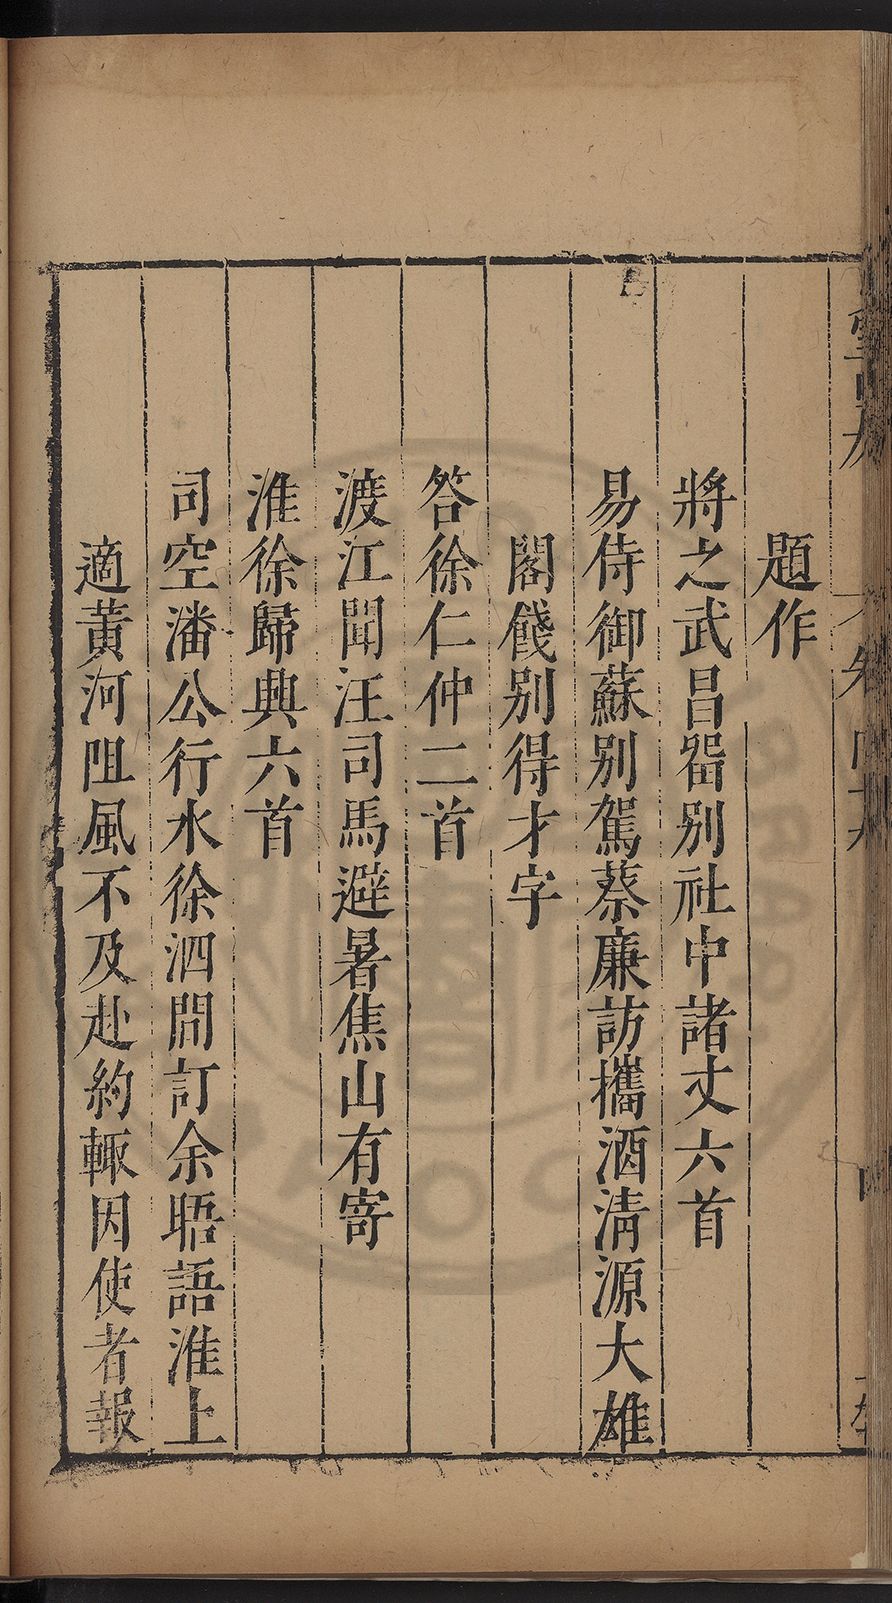 題作
將之武昌畱别社中諸丈六首
易侍御蘇别駕蔡廉訪攜酒淸源大雄
閣餞别得才字
答徐仁仲二首
渡江聞汪司馬避暑焦山有寄
淮徐歸興六首
司空潘公行水徐泗間訂余晤語淮上
適黃河阻風不及赴約輙因使者報